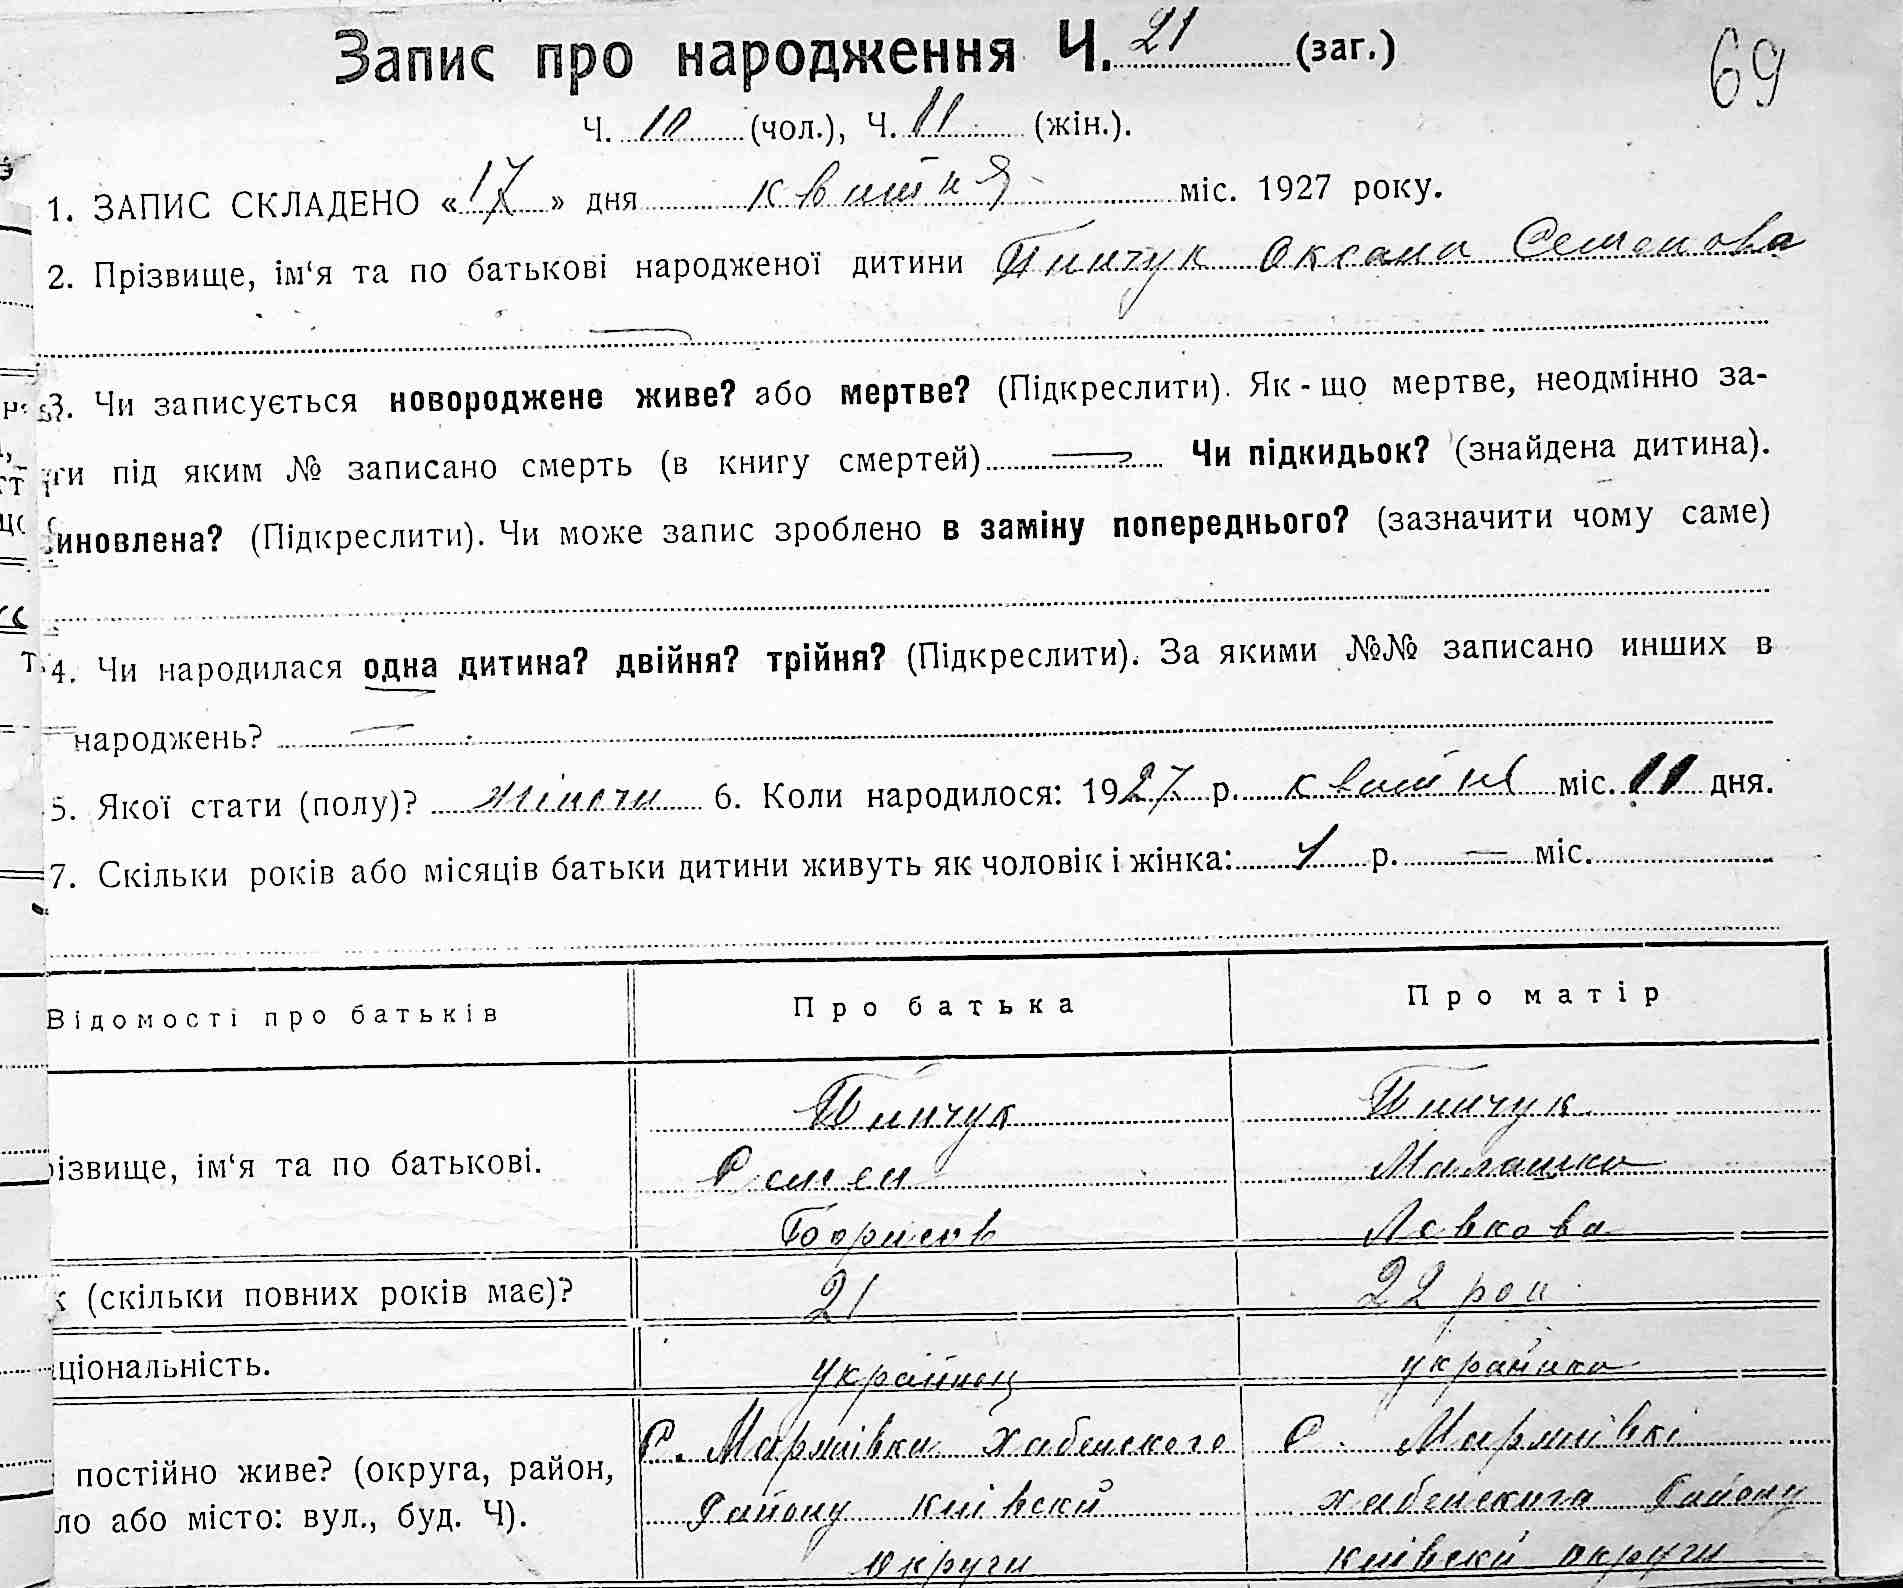 Запис про народження Ч. 21 (заг.)
69
Ч. 10 (чол.), Ч. 11 (жін.).
1. ЗАПИС СКЛАДЕНО «17» дня квитня міс. 1927 року.
2. Прізвище, ім'я та по батькові народженої дитини Пинчук Оксана Семенова
3. Чи записується новороджене живе? або мертве? (Підкреслити). Як-що мертве, неодмінно за-
ти під яким № записано смерть (в книгу смертей) — Чи підкидьок? (знайдена дитина).
иновлена? (Підкреслити). Чи може запис зроблено в заміну попереднього? (зазначити чому саме)
4. Чи народилася одна дитина? двійня? трійня? (Підкреслити). За якими №№ записано инших в
народжень? —
5. Якої стати (полу)? жіночи 6. Коли народилося: 1927 р. квитня міс. 11 дня.
7. Скільки років або місяців батьки дитини живуть як чоловік і жінка: 1 р. — міс.
Відомості про батьків Про батька Про матір
Пинчук Пинчук
різвище, ім'я та по батькові. Семен Малашка
Борисов Левкова
к (скільки повних років має)? 21 22 рои
ціональність. українец українка
С. Мартиівки Хабенского С. Мартиівкі
постійно живе? (округа, район, Району киівскй хабенскига Району
ло або місто: вул., буд. Ч). округи киівскй округи